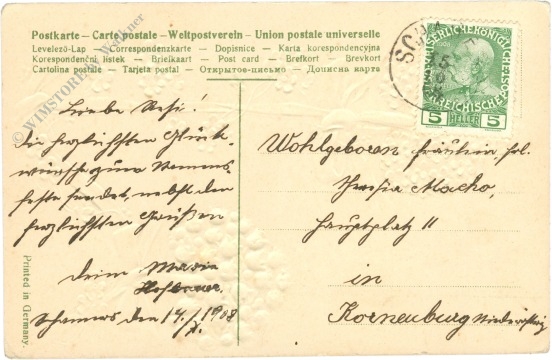 Postkarte - Carte postale - Weltpostverein - Union postale universelle
Levelező-Lap — Correspondenzkarte — Dopisnice — Karta korespondencyjna
Korespondenční lístek — Briefkaart — Post card — Brefkort — Brevkort
Cartolina postale — Tarjeta postal — Открытое-письмо — Дописна карта
SCHA
KAISERLICHE KÖNIGLICHE
1908
ÖSTERREICHISCHE
5 HELLER 5
Liebe Resi!
die herzlichsten Glück-
wünsche zum Namens
feste sendet, nebst den
herzlichsten Grüßen
Deine Maria
Hofbauer.
den 14./X. 1908
Wohlgeboren Fräulein
Theresia Macho,
Hauptplatz 11
in
Korneuburg
Printed in Germany.
© WIMSTORIA